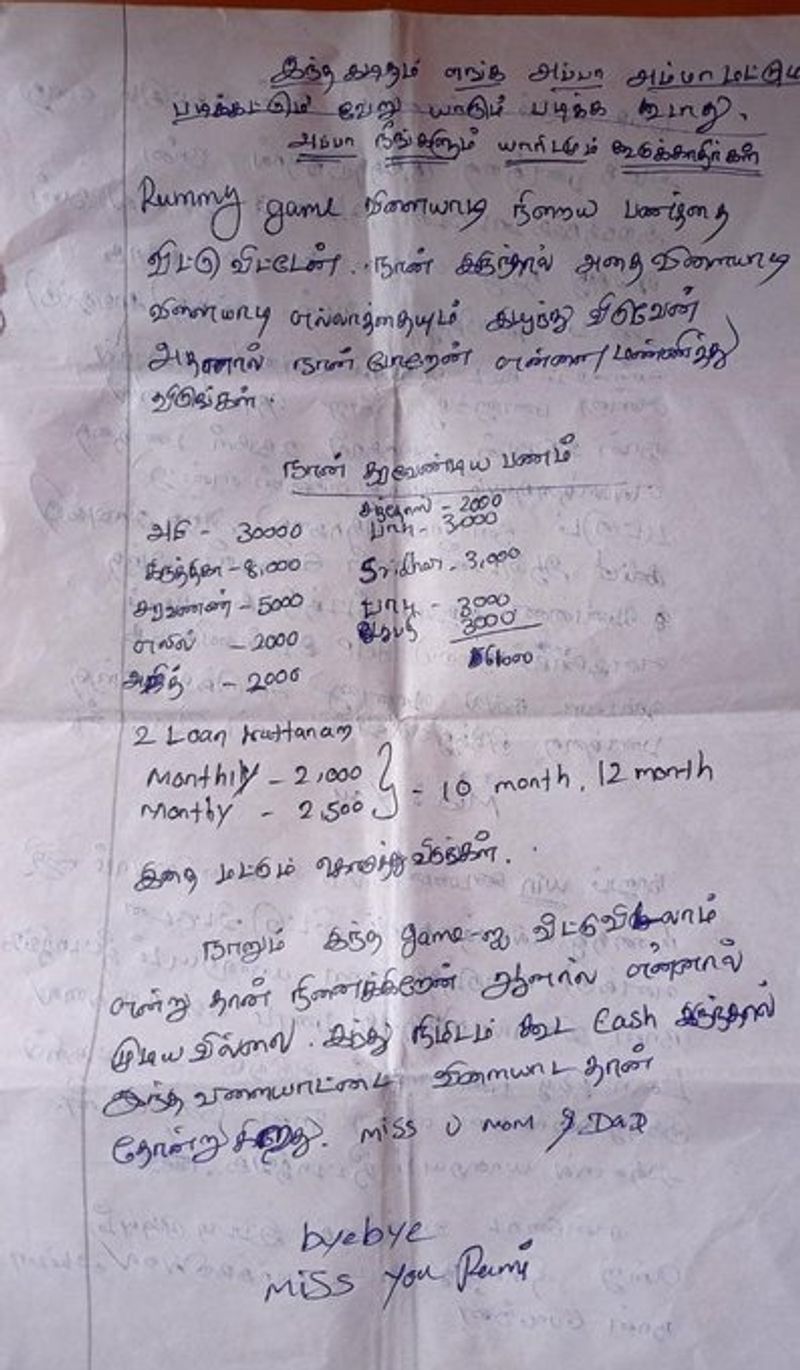 இந்த கடிதம் எங்க அப்பா அம்மா மட்டும்
படிக்கட்டும் வேறு யாரும் படிக்க கூடாது.
அப்பா நீங்களும் யாரிடமும்
Rummy game விளையாடி நிறைய பணத்தை
விட்டு விட்டேன். நான் இருந்தால் அதை விளையாடி
விளையாடி எல்லாத்தையும் இழந்து விடுவேன்
அதனால் நான் போறேன் என்னை மன்னித்து
விடுங்கள்.
நான் தரவேண்டிய பணம்
சந்தோஸ் - 2000
அபி - 30000 பாபு - 3,000
கிருத்திகா - 8,000 Sridhar - 3,000
சரவணன் - 5000 பாபு - 3000
எலில் - 2000 3000
61000
அஜித் - 2000
2 Loan kuttanam
Monthly - 2,000
Monthy - 2,500 } - 10 month, 12 month
இதை மட்டும் கொடுத்து விடுங்கள்.
நானும் இந்த game-ஐ விட்டுவிடலாம்
என்று தான் நினைக்கிறேன் ஆனால் என்னால்
முடியவில்லை. ஐந்து நிமிடம் கூட Cash இருந்தால்
இந்த விளையாட்டை விளையாட தான்
தோன்றுகிறது. Miss U Mom & Dad
byebye
Miss You Rami